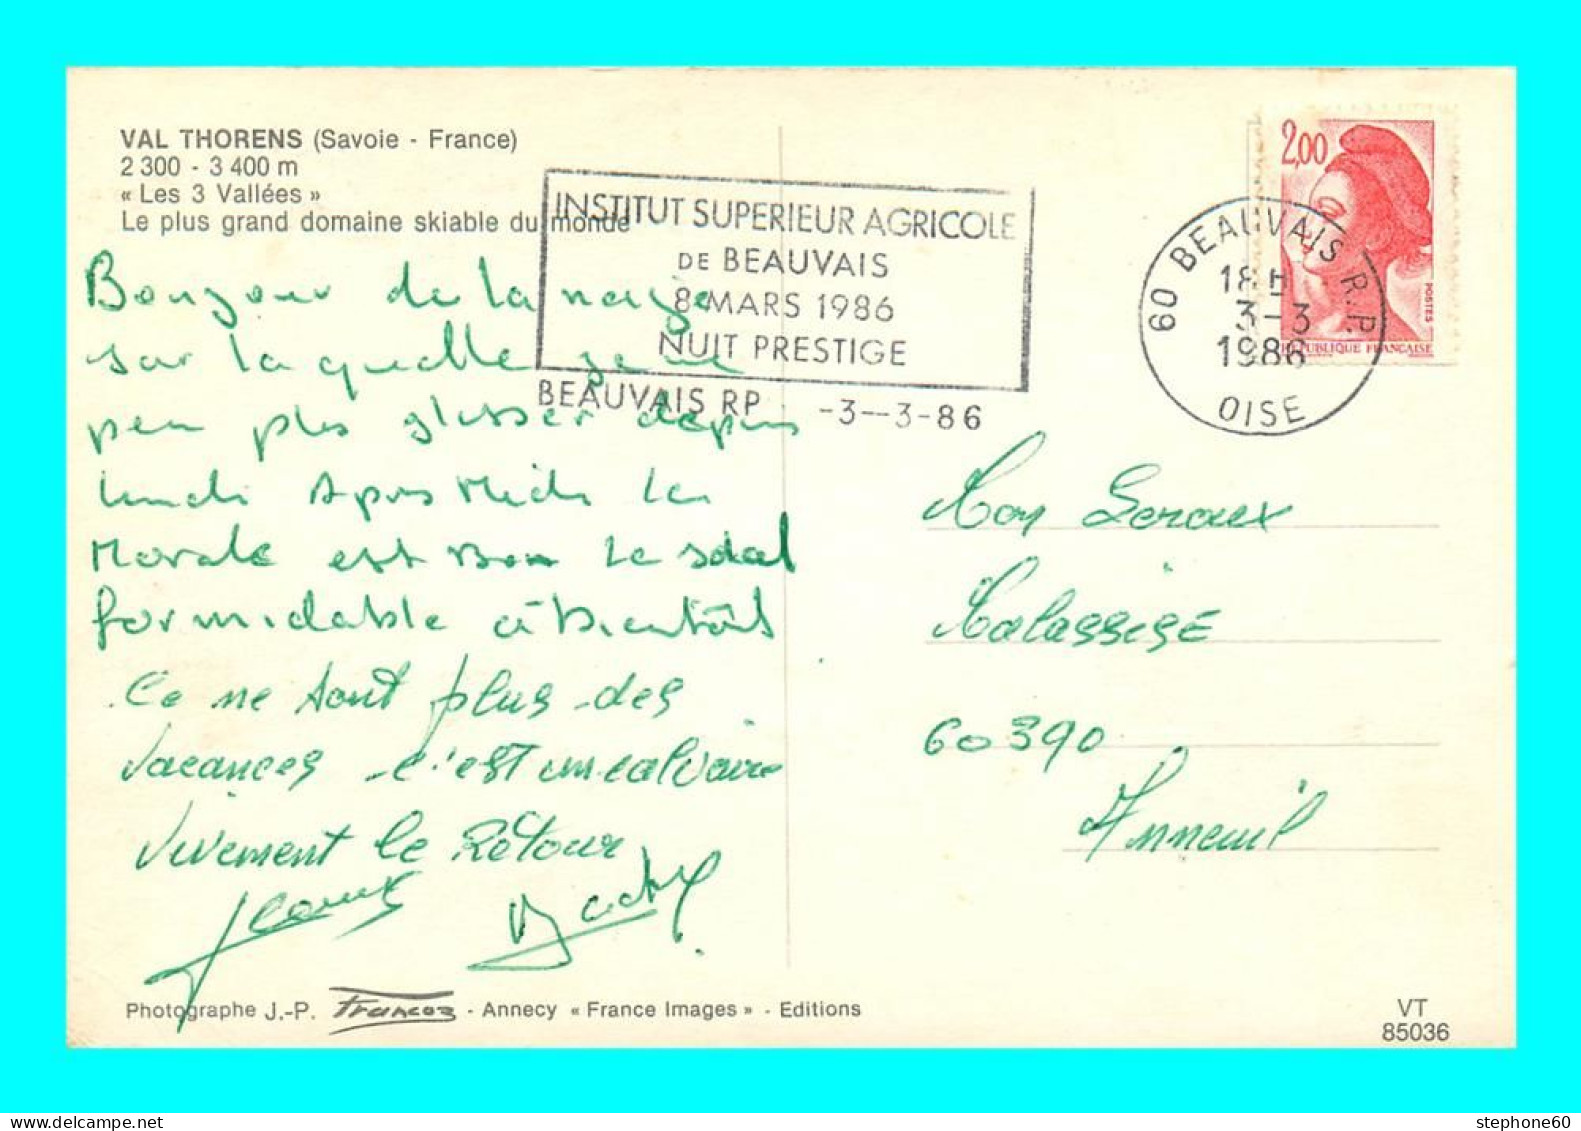 VAL THORENS (Savoie - France)
2 300 - 3 400 m
« Les 3 Vallées »
Le plus grand domaine skiable du monde
INSTITUT SUPERIEUR AGRICOLE
DE BEAUVAIS
8 MARS 1986
NUIT PRESTIGE
BEAUVAIS RP -3--3-86
2,00
POSTES
REPUBLIQUE FRANÇAISE
60 BEAUVAIS R.P.
18H
3-3
1986
OISE
Bonjour de la neige
sur la quelle je ne
peu plus glisser depuis
lundi Apres Midi Le
Morale est Bon Le soleil
formidable à Bientôt
Ce ne sont plus des
vacances c'est un calvaire
Vivement le Retour
Leroux
Malassise
60390
Anneuil
Photographe J.-P. Francoz - Annecy « France Images » - Editions
VT
85036
stephone60